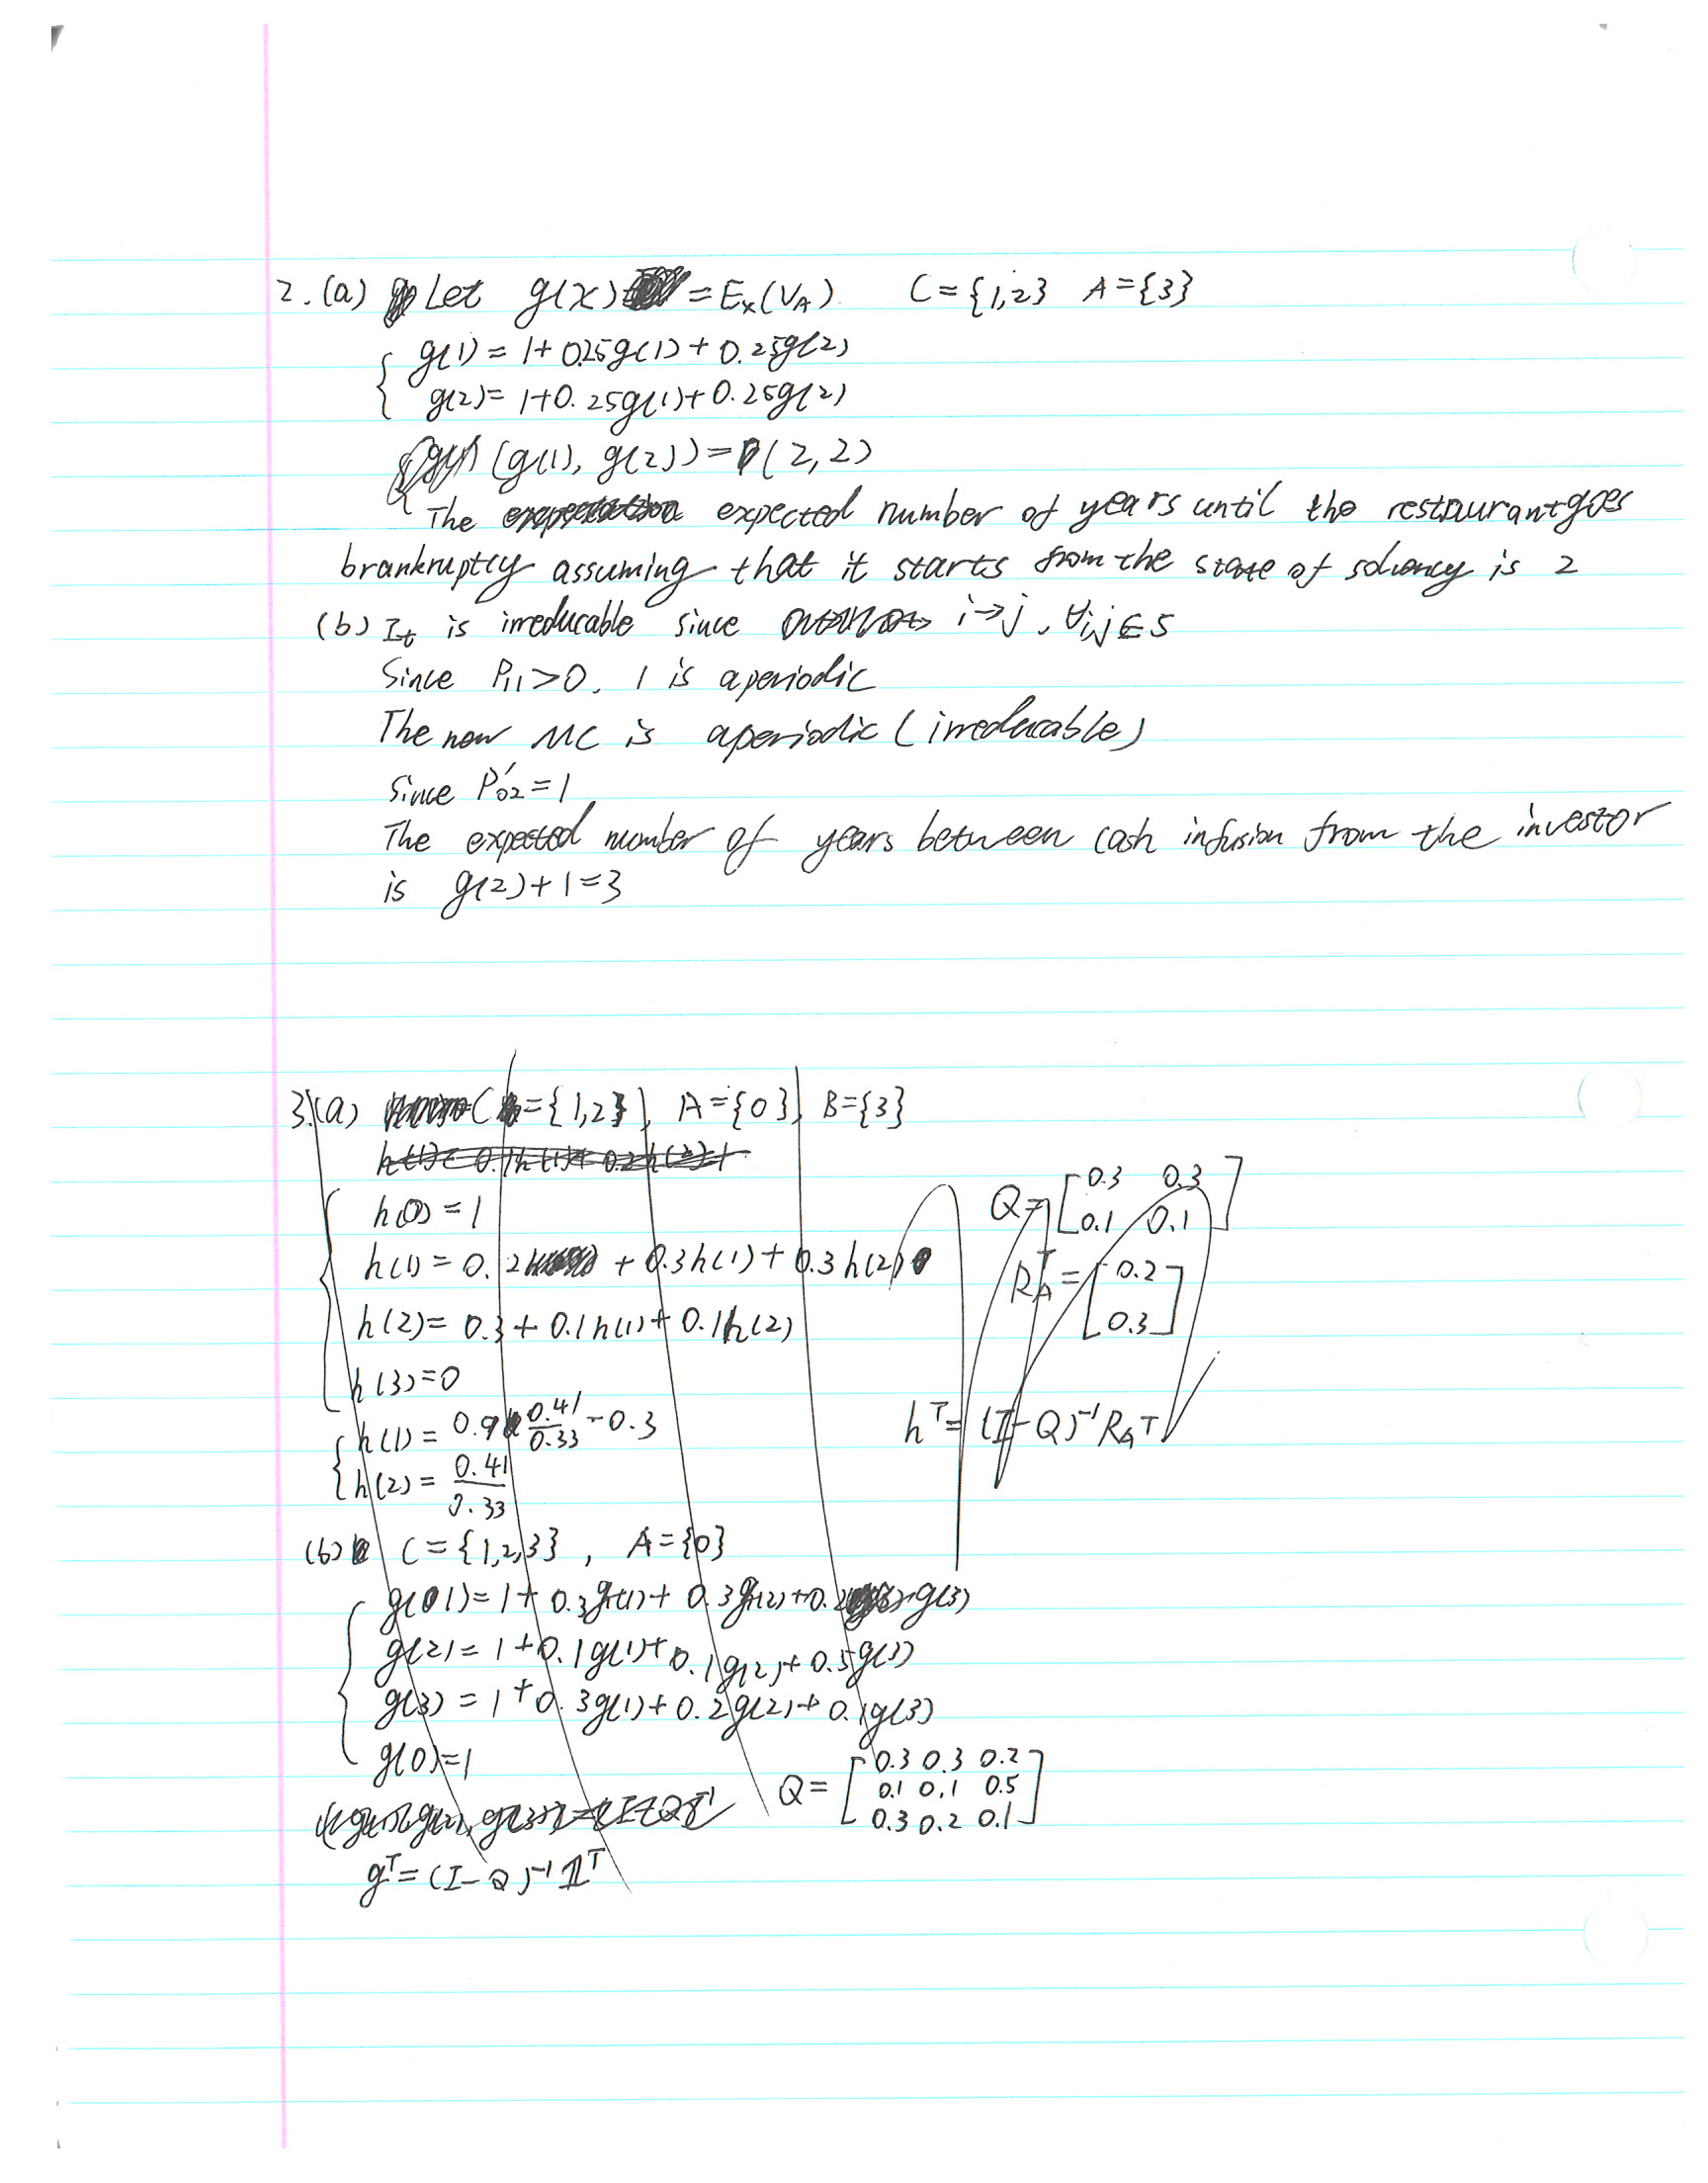 2. (a) Let g(x) = Ex(VA). C={1,2} A={3}
g(1) = 1+0.25g(1)+0.25g(2)
g(2)= 1+0.25g(1)+0.25g(2)
(g(1), g(2))=(2,2)
The expected number of years until the restaurant goes
brankruptcy assuming that it starts from the state of solvency is 2
(b) It is irreducable since i→j, ∀i,j∈S
Since P11>0, 1 is aperiodic
The new MC is aperiodic (irreducable)
Since P'02=1
The expected number of years between cash infusion from the investor
is g(2)+1=3
3.(a) C={1,2}, A={0}, B={3}
h(1)= 0.1h(1)+0.2h(2)+
h(0)=1
h(1)=0.2+0.3h(1)+0.3h(2)
h(2)= 0.3+0.1h(1)+0.1h(2)
h(3)=0
Q=[0.3 0.3
0.1 0.1]
RA^T=[0.2
0.3]
h(1)= 0.9 0.41/0.33 -0.3
h(2)= 0.41/0.33
h^T=(I-Q)^-1 RA^T
(b) C={1,2,3}, A={0}
g(1)=1+0.3g(1)+0.3g(2)+0.2g(3)
g(2)=1+0.1g(1)+0.1g(2)+0.5g(3)
g(3)=1+0.3g(1)+0.2g(2)+0.1g(3)
g(0)=1
Q=[0.3 0.3 0.2
0.1 0.1 0.5
0.3 0.2 0.1]
g^T=(I-Q)^-1 𝟙^T